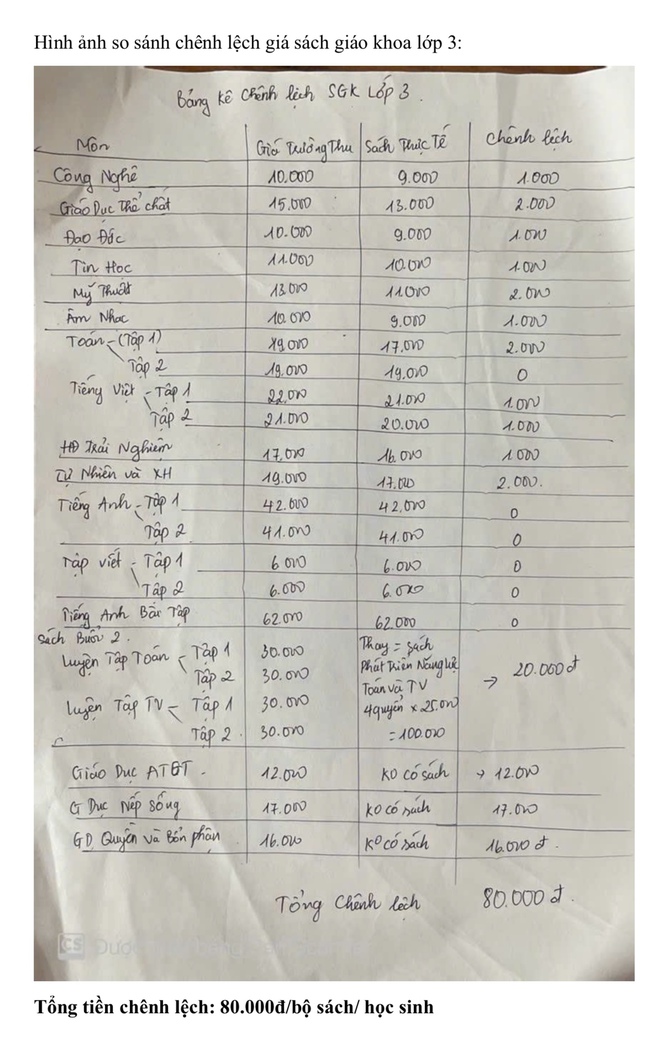 Hình ảnh so sánh chênh lệch giá sách giáo khoa lớp 3:
Bảng kê chênh lệch SGK Lớp 3.
Môn Giá Trường Thu Sách Thực Tế Chênh lệch
Công Nghệ 10.000 9.000 1.000
Giáo Dục Thể chất 15.000 13.000 2.000
Đạo Đức 10.000 9.000 1.000
Tin Học 11.000 10.000 1.000
Mỹ Thuật 13.000 11.000 2.000
Âm Nhạc 10.000 9.000 1.000
Toán - (Tập 1) 19.000 17.000 2.000
Tập 2 19.000 19.000 0
Tiếng Việt - Tập 1 22.000 21.000 1.000
Tập 2 21.000 20.000 1.000
HĐ Trải Nghiệm 17.000 16.000 1.000
Tự Nhiên và XH 19.000 17.000 2.000.
Tiếng Anh - Tập 1 42.000 42.000 0
Tập 2 41.000 41.000 0
Tập viết - Tập 1 6.000 6.000 0
Tập 2 6.000 6.000 0
Tiếng Anh Bài Tập 62.000 62.000 0
Sách Buổi 2.
Luyện Tập Toán - Tập 1 30.000 Thay = sách
Tập 2 30.000 Phát Triển Năng lực → 20.000đ
Luyện Tập TV - Tập 1 30.000 Toán và TV 4 quyển x 25.000
Tập 2. 30.000 = 100.000
Giáo Dục ATGT. 12.000 KO có sách → 12.000
G Dục Nếp Sống 17.000 KO có sách 17.000
GD Quyền và Bổn phận 16.000 KO có sách 16.000 đ.
Tổng chênh lệch 80.000 đ.
CS Được
Tổng tiền chênh lệch: 80.000đ/bộ sách/ học sinh